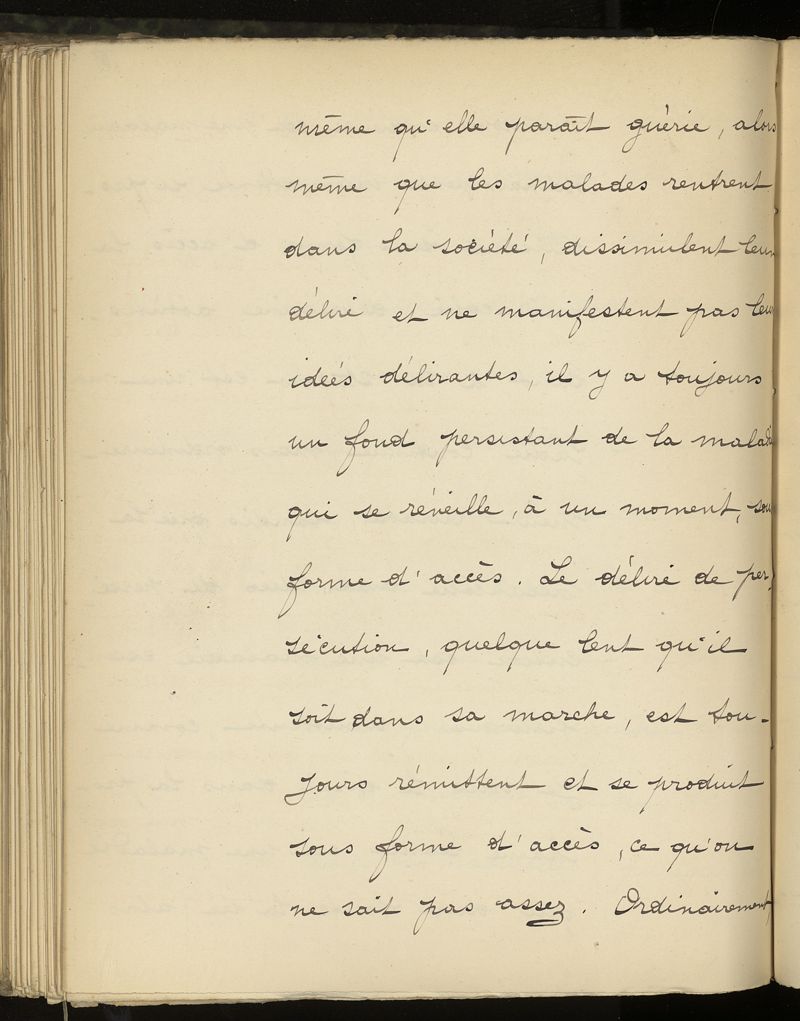 même qu'elle paraît guérie, alors
même que les malades rentrent
dans la société, dissimulent leur
délire et ne manifestent pas leurs
idées délirantes, il y a toujours
un fond persistant de la maladie
qui se réveille, à un moment, sous
forme d'accès. Le délire de per-
sécution, quelque lent qu'il
soit dans sa marche, est tou-
jours rémittent et se produit
sous forme d'accès, ce qu'on
ne sait pas assez. Ordinairement